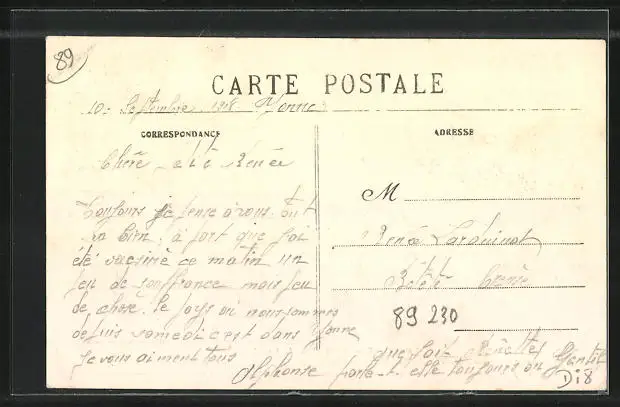 89
CARTE POSTALE
10 Septembre 1918 Yonne
CORRESPONDANCE
ADRESSE
Chère et Renée
Toujours je pense à vous tout
va bien à part que j'ai
été vacciné ce matin un
peu de souffrance mais peu
de chose. le pays où nous sommes
depuis samedi c'est dans Yonne
Je vous aiment tous
Alphonse
M
Renée
89 230
que fait
porte-t-elle toujours
Gentil
Di8